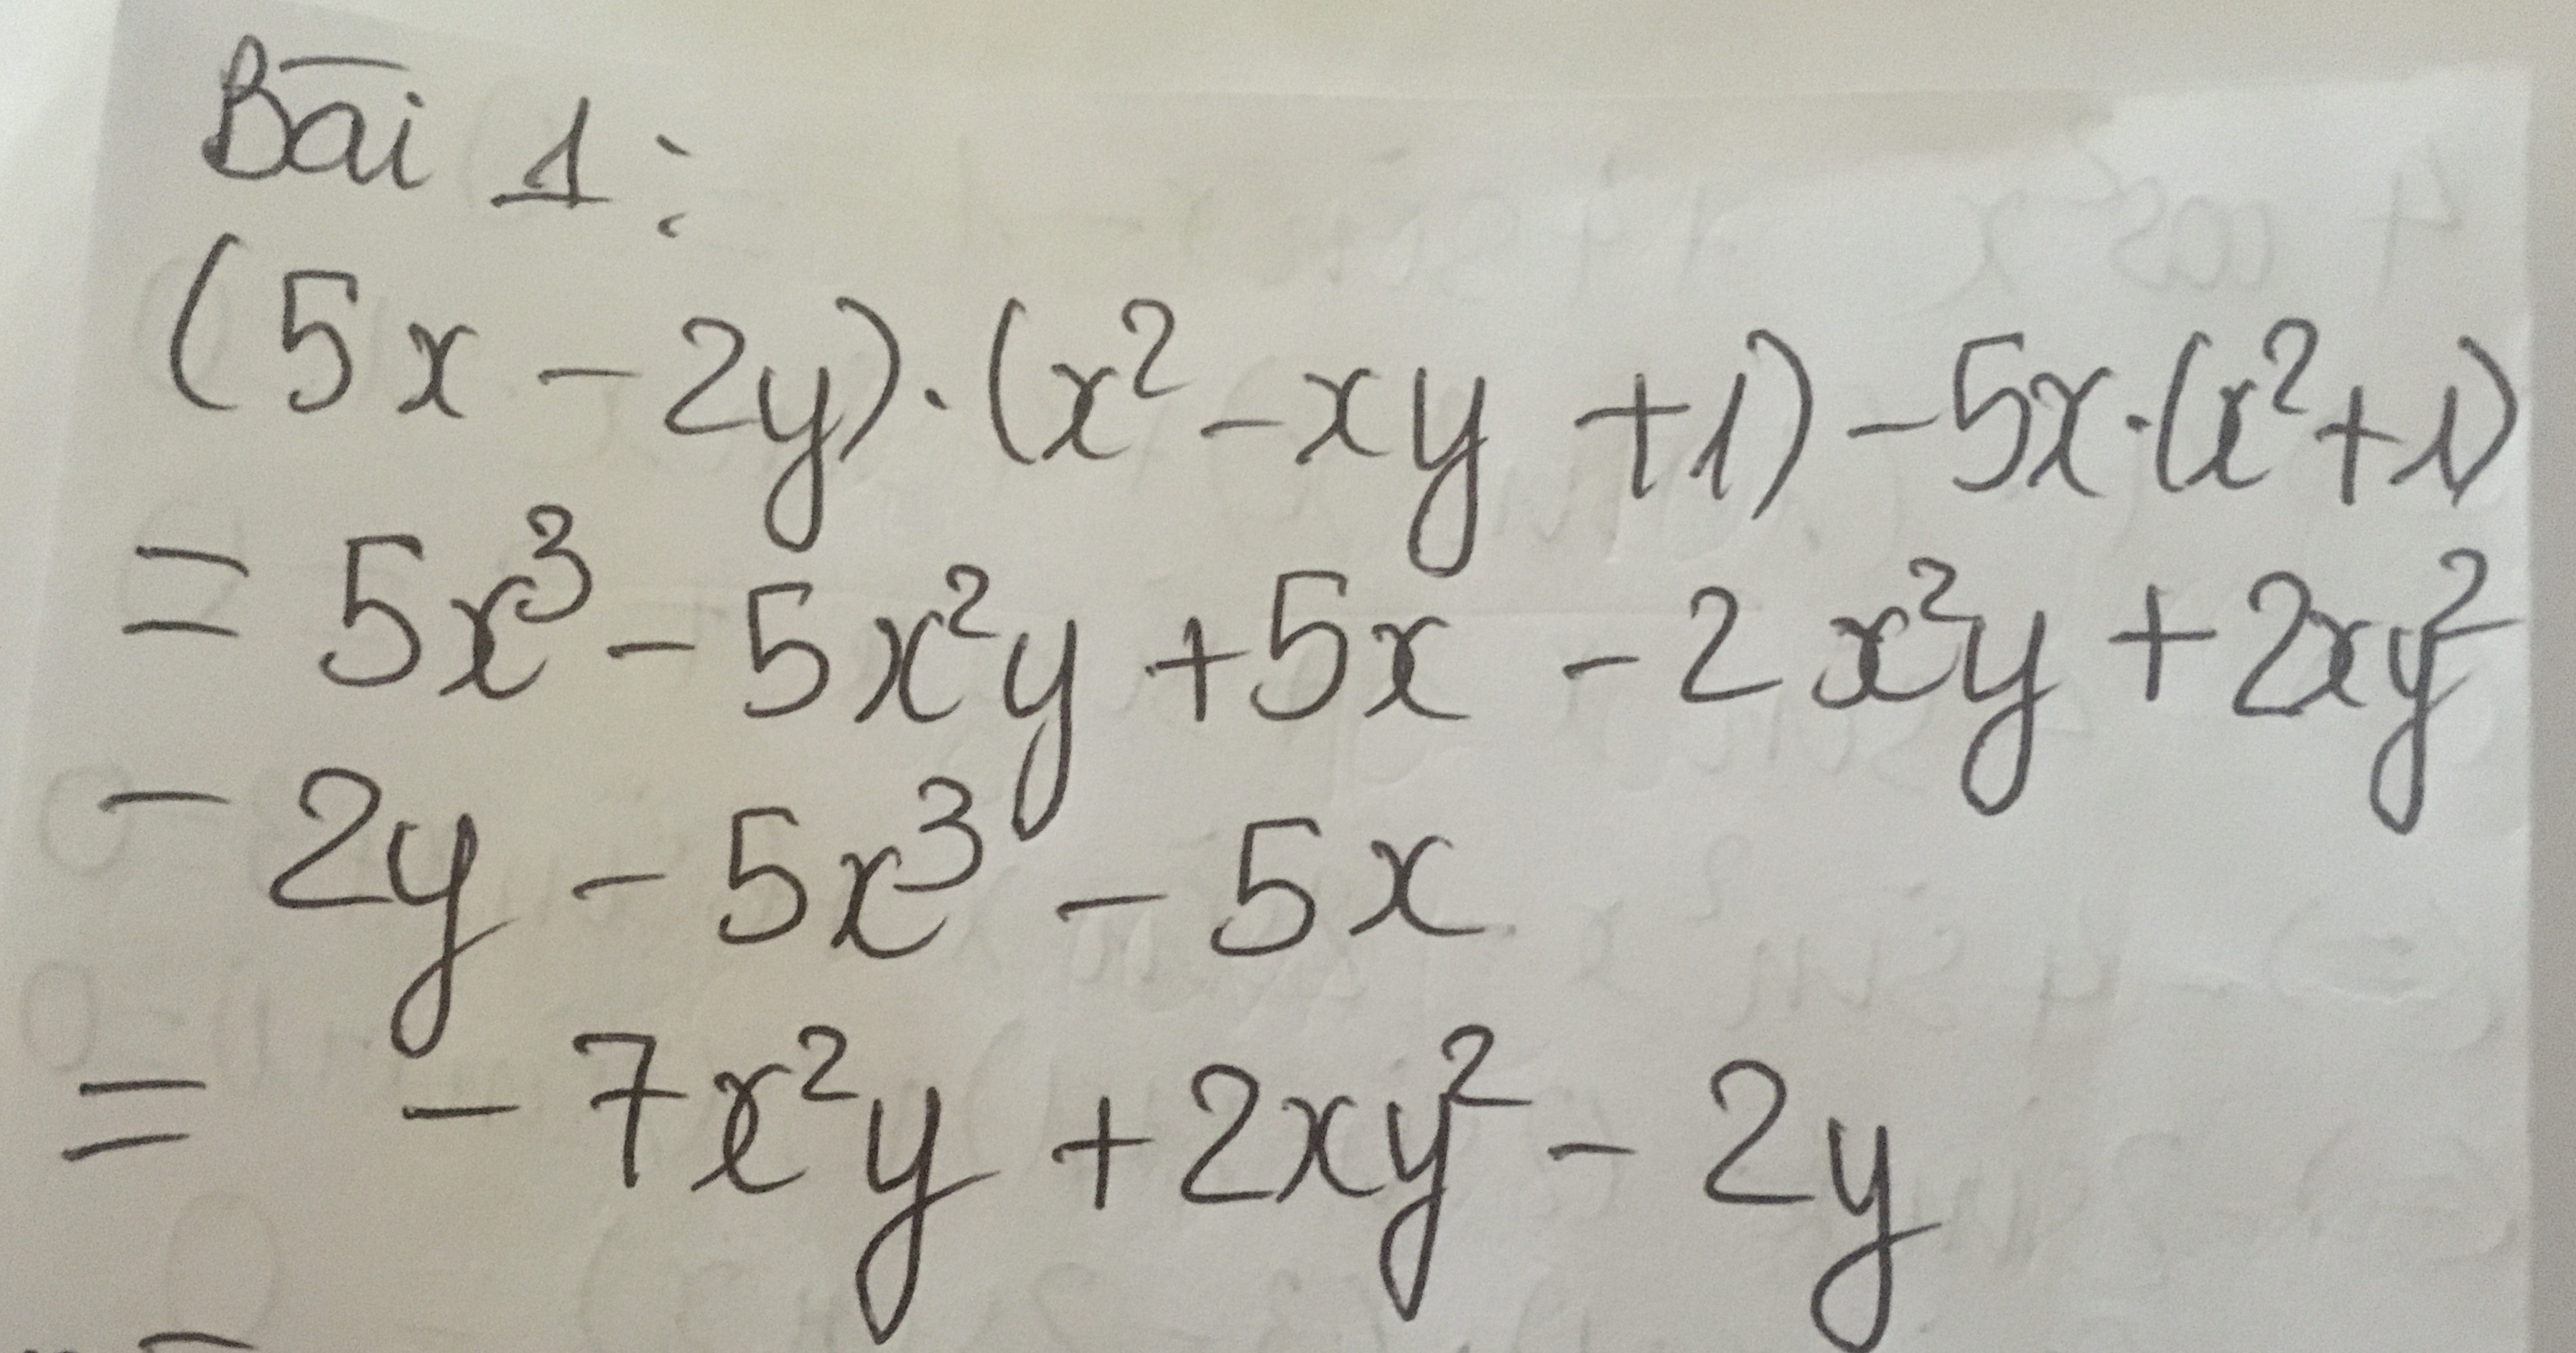 Bài 1:
(5x - 2y) . (x² - xy + 1) - 5x . (x² + 1)
= 5x³ - 5x²y + 5x - 2x²y + 2xy²
- 2y - 5x³ - 5x
= - 7x²y + 2xy² - 2y